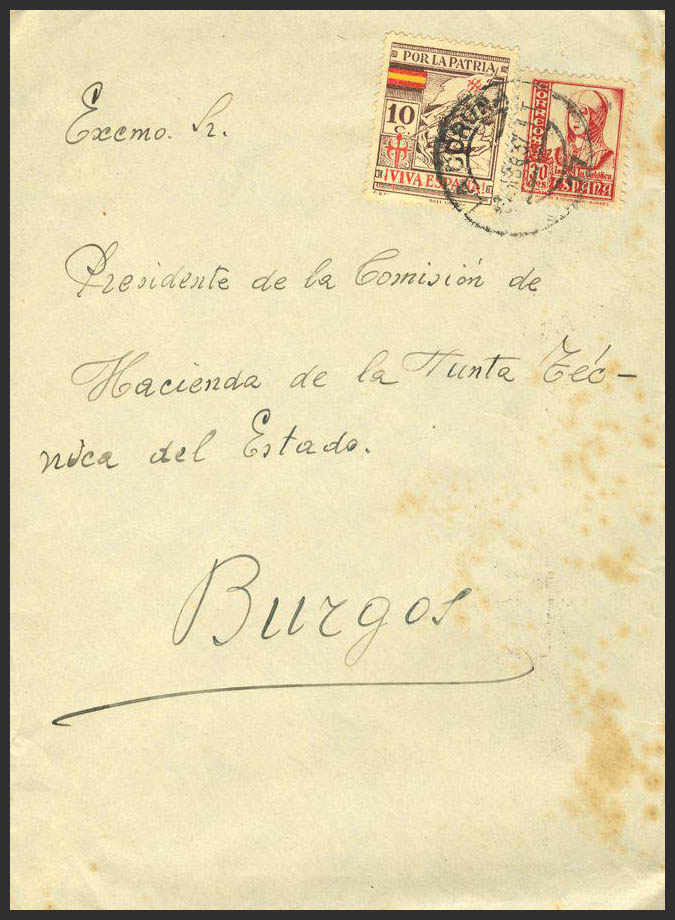 POR LA PATRIA
10
C.
¡VIVA ESPAÑA!
CORREOS
ESPAÑA
CORUÑA
Excmo. Sr.
Presidente de la Comisión de
Hacienda de la Junta Téc-
nica del Estado.
Burgos